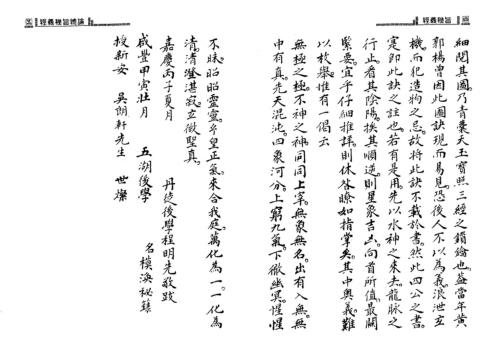 經義機旨 辨論
細閱其圖乃青囊天玉寶照三經之鎖鑰也蓋當年黃
郭楊曾因此圖訣現而易見恐後人不以為義浪泄玄
機而犯造物之忌故將此訣不載於書然此四公之書
寔即此訣之註也若有是用先以水神之來去龍脈之
行止看其陰陽挨其順逆則星象吉凶向首所值最關
緊要宜乎仔細推詳則休咎瞭如指掌矣其中奧義難
以枚舉惟有一偈云
無極之極不神之神同同上宰無象無名出有入無無
中有真先天混沌四象河分上窮九氣下徹幽冥惺惺
不昧昭昭靈靈皇正氣來合我庭萬化為一一化為
清清澄湛寂立徹聖真
嘉慶丙子夏月
丹徒後學程明先敬跋
咸豐甲寅壯月
五湖後學 名模渙秘錄
授新安 吳朗軒先生 世燦
經義機旨 辨論